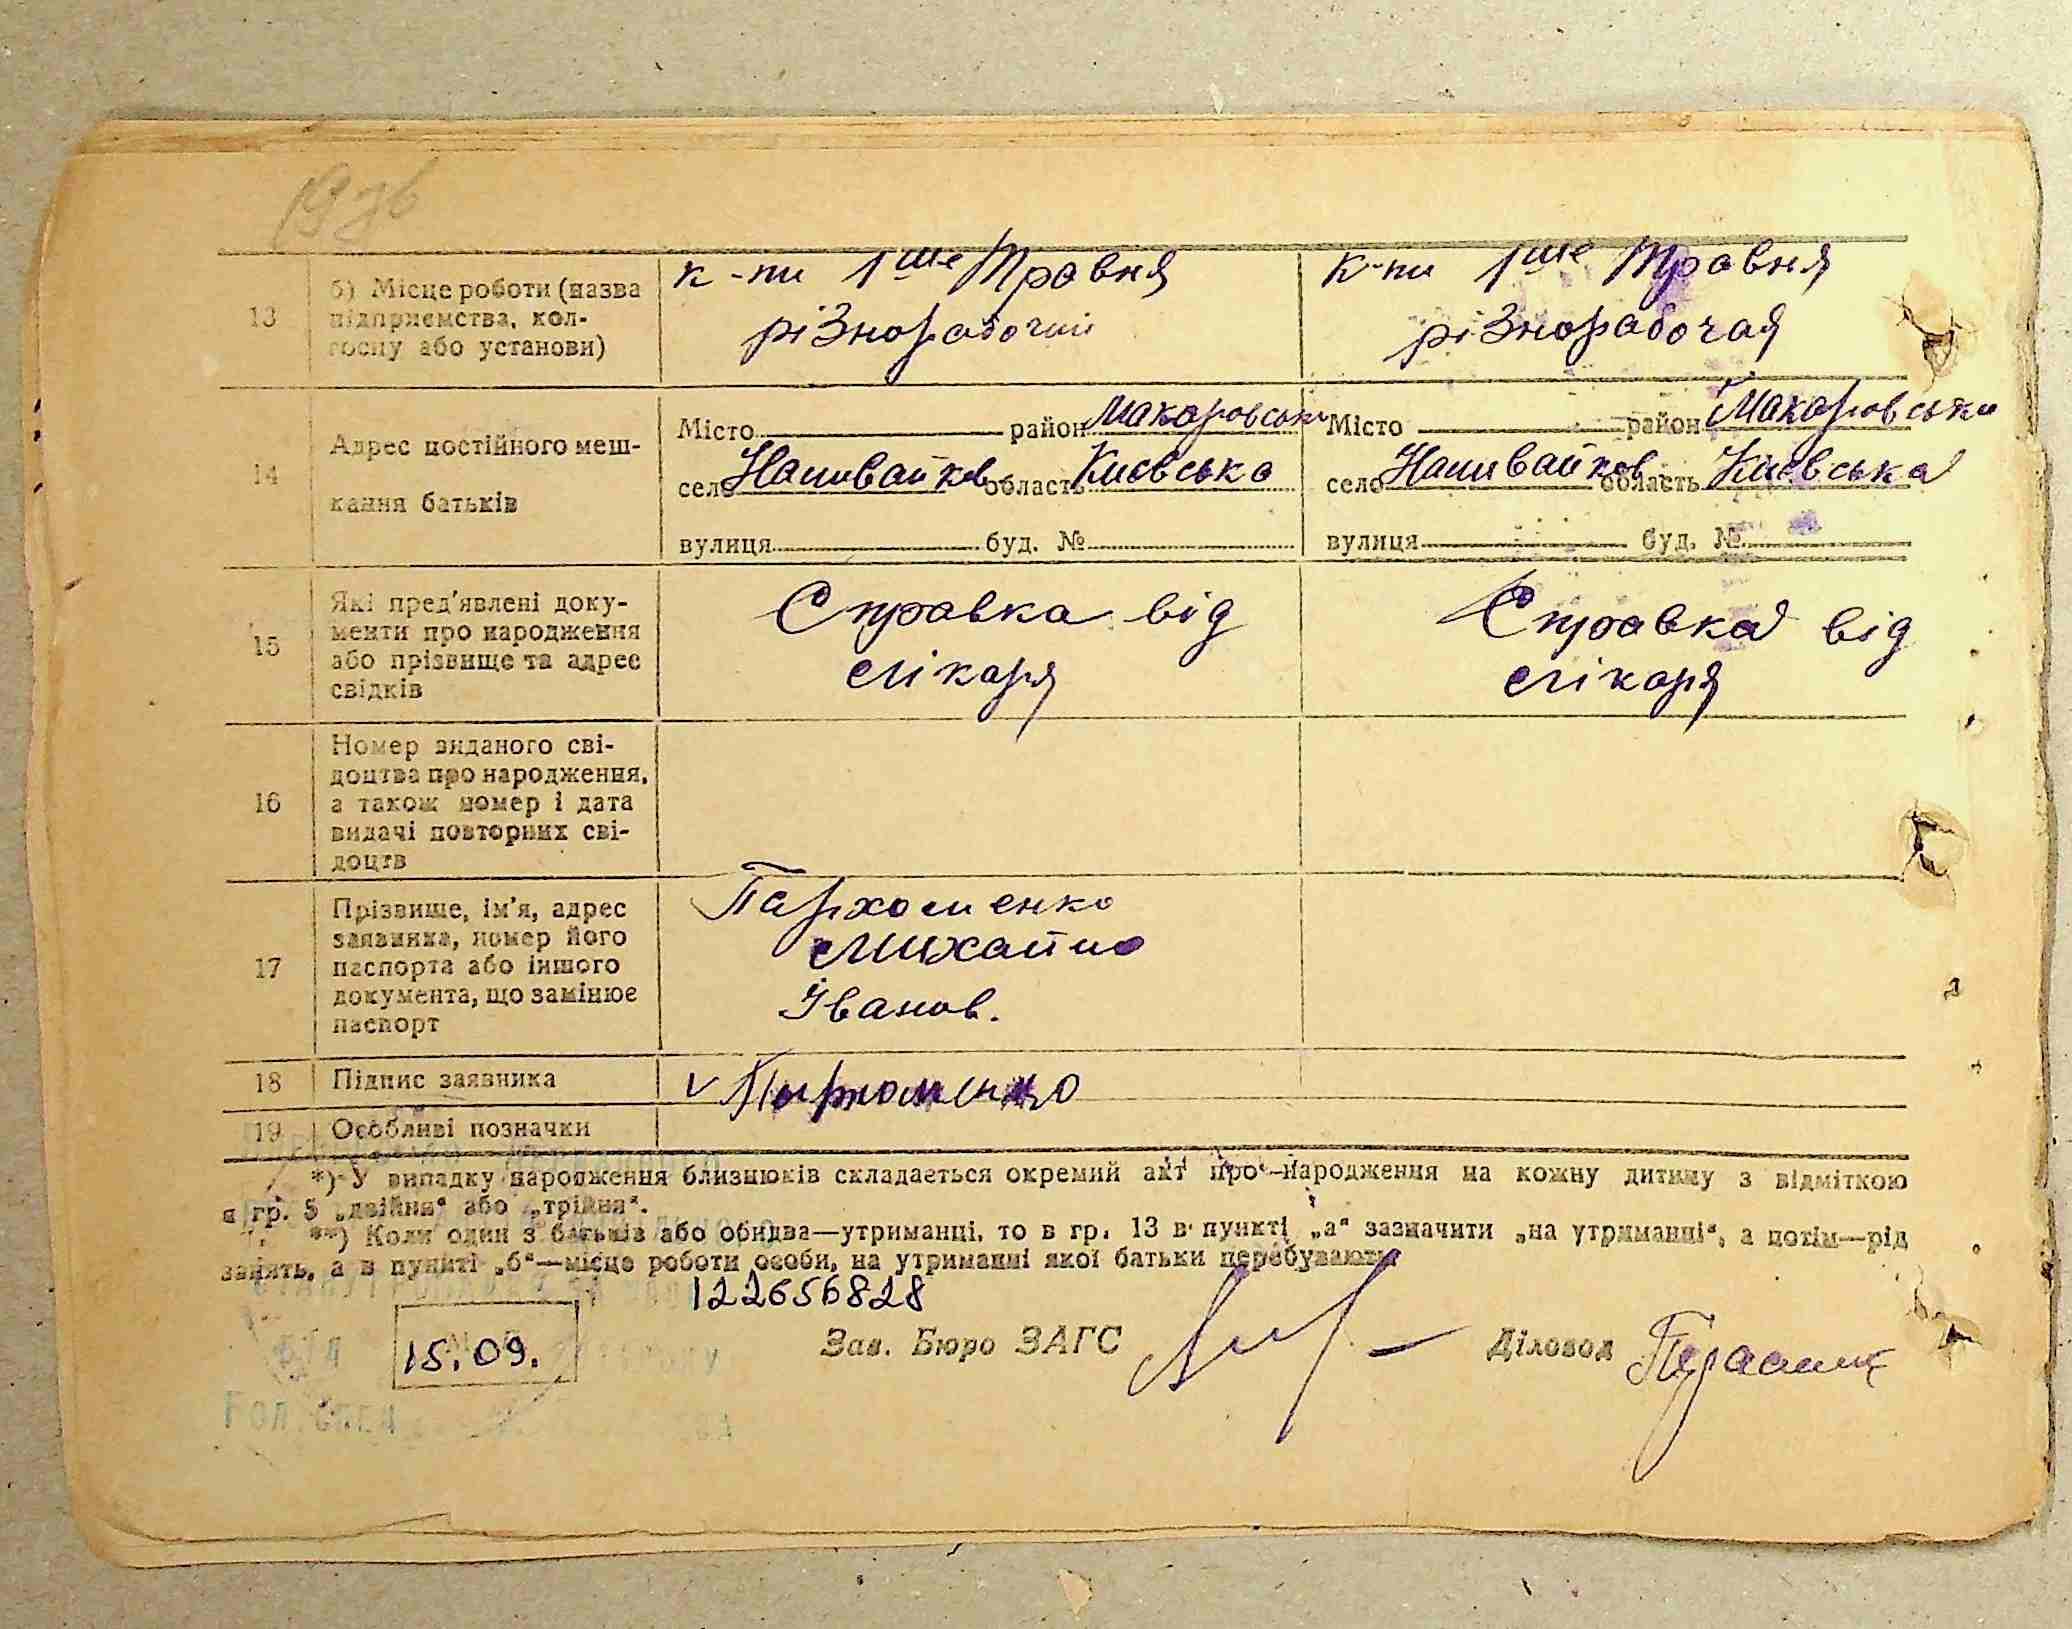 13
б) Місце роботи (назва
підприємства, кол-
госпу або установи)
к-пи 1ше Травня
різнорабочий
к-пи 1ше Травня
різнорабочая
14
Адрес постійного меш-
кання батьків
Місто район Макаровськи
село Наливайков область Києвська
вулиця буд. №
Місто район Макаровськи
село Наливайков область Києвська
вулиця буд. №
15
Які пред'явлені доку-
менти про народження
або прізвище та адрес
свідків
Справка від
лікаря
Справка від
лікаря
16
Номер виданого сві-
доцтва про народження,
а також номер і дата
видачі повторних сві-
доцтв
17
Прізвище, ім'я, адрес
заявника, номер його
паспорта або іншого
документа, що замінює
паспорт
Пархоменко
Михайло
Іванов.
18 Підпис заявника
v Пархоменко
19 Особливі позначки
*) У випадку народження близнюків складається окремий акт про народження на кожну дитину з відміткою
в гр. 5 „двійня" або „трійня".
**) Коли один з батьків або обидва—утриманці, то в гр. 13 в пункті „а" зазначити „на утриманні", а потім—рід
занять, а в пункті „б"—місце роботи особи, на утриманні якої батьки перебувають
122656828
15.09.
Зав. Бюро ЗАГС
Діловод